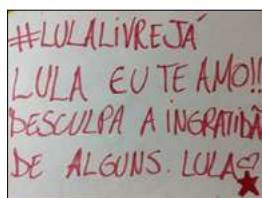 #LULALIVREJÁ
LULA EU TE AMO!!
DESCULPA A INGRATIDÃ
DE ALGUNS. LULA♡